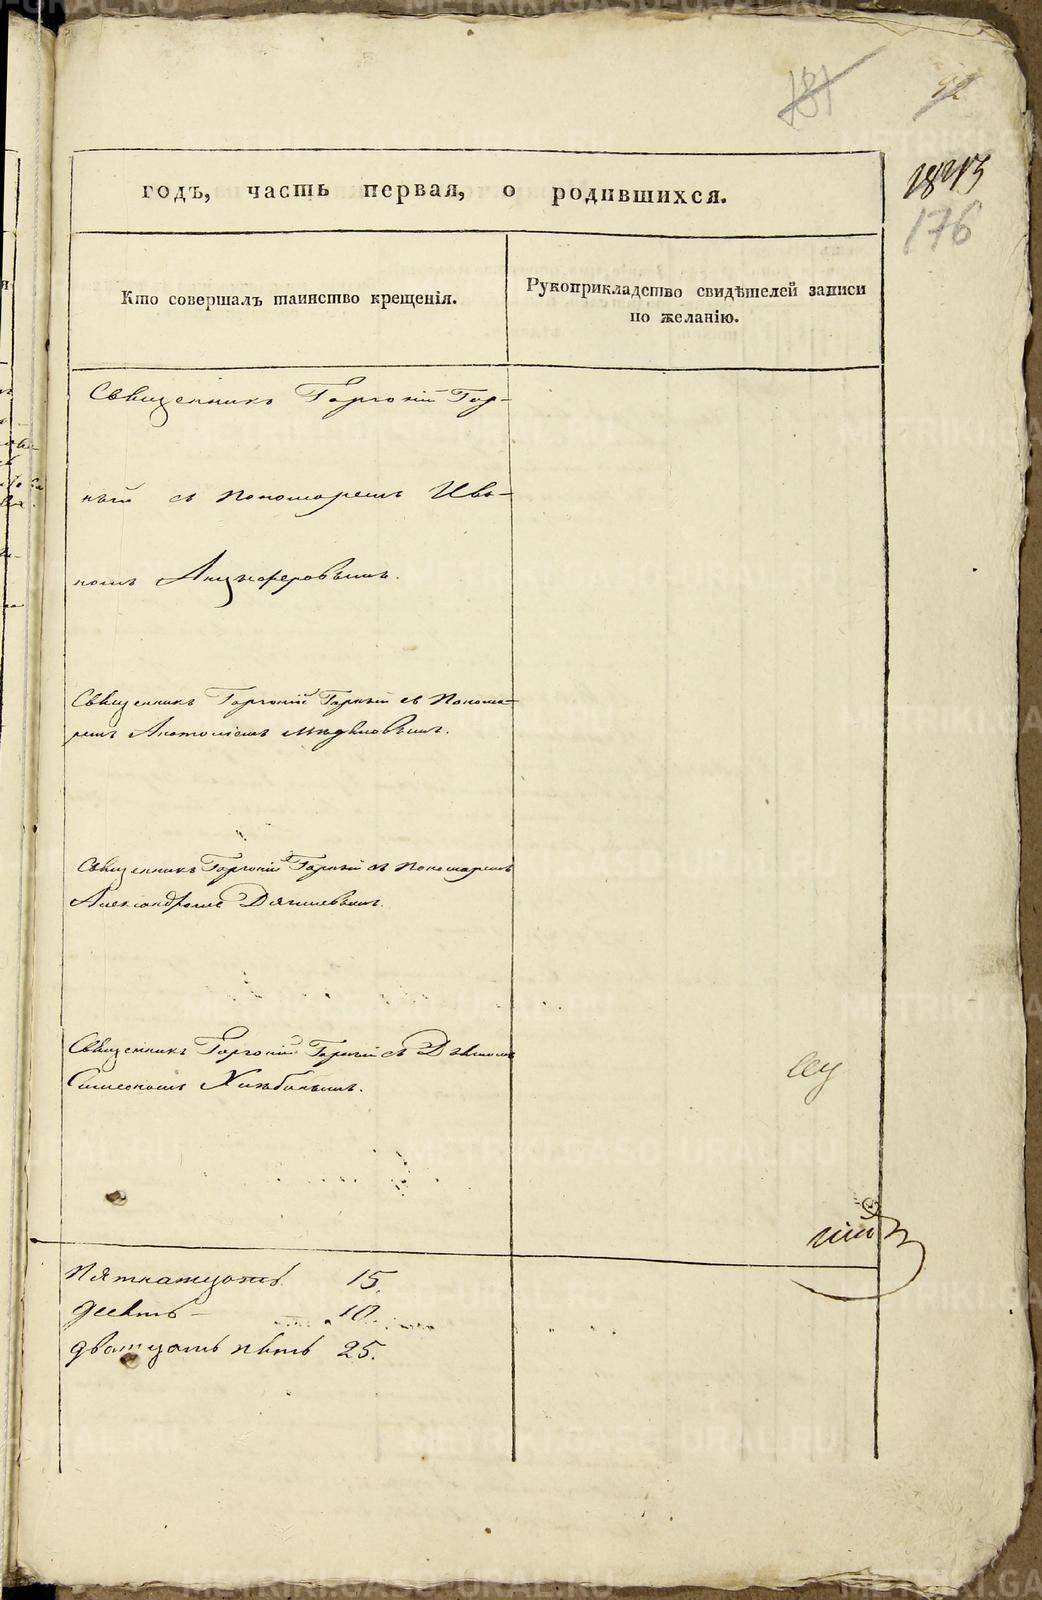 181
92
годъ, часть первая, о родившихся.
176
Кто совершалъ таинство крещенія.
Рукоприкладство свидѣтелей записи
по желанію.
Священникъ Горгоній Гор-
ный съ Пономаремъ Ива-
номъ Анциферовымъ.
Священникъ Горгоній Горный съ Понома-
ремъ Анатоліемъ
Священникъ Горгоній Горный съ Пономаремъ
Александромъ Дягилевымъ.
Священникъ Горгоній Горный съ Дьячкомъ
Симеономъ Хлѣбинымъ.
Пятнатцать 15.
десять 10.
дватцать пять 25.